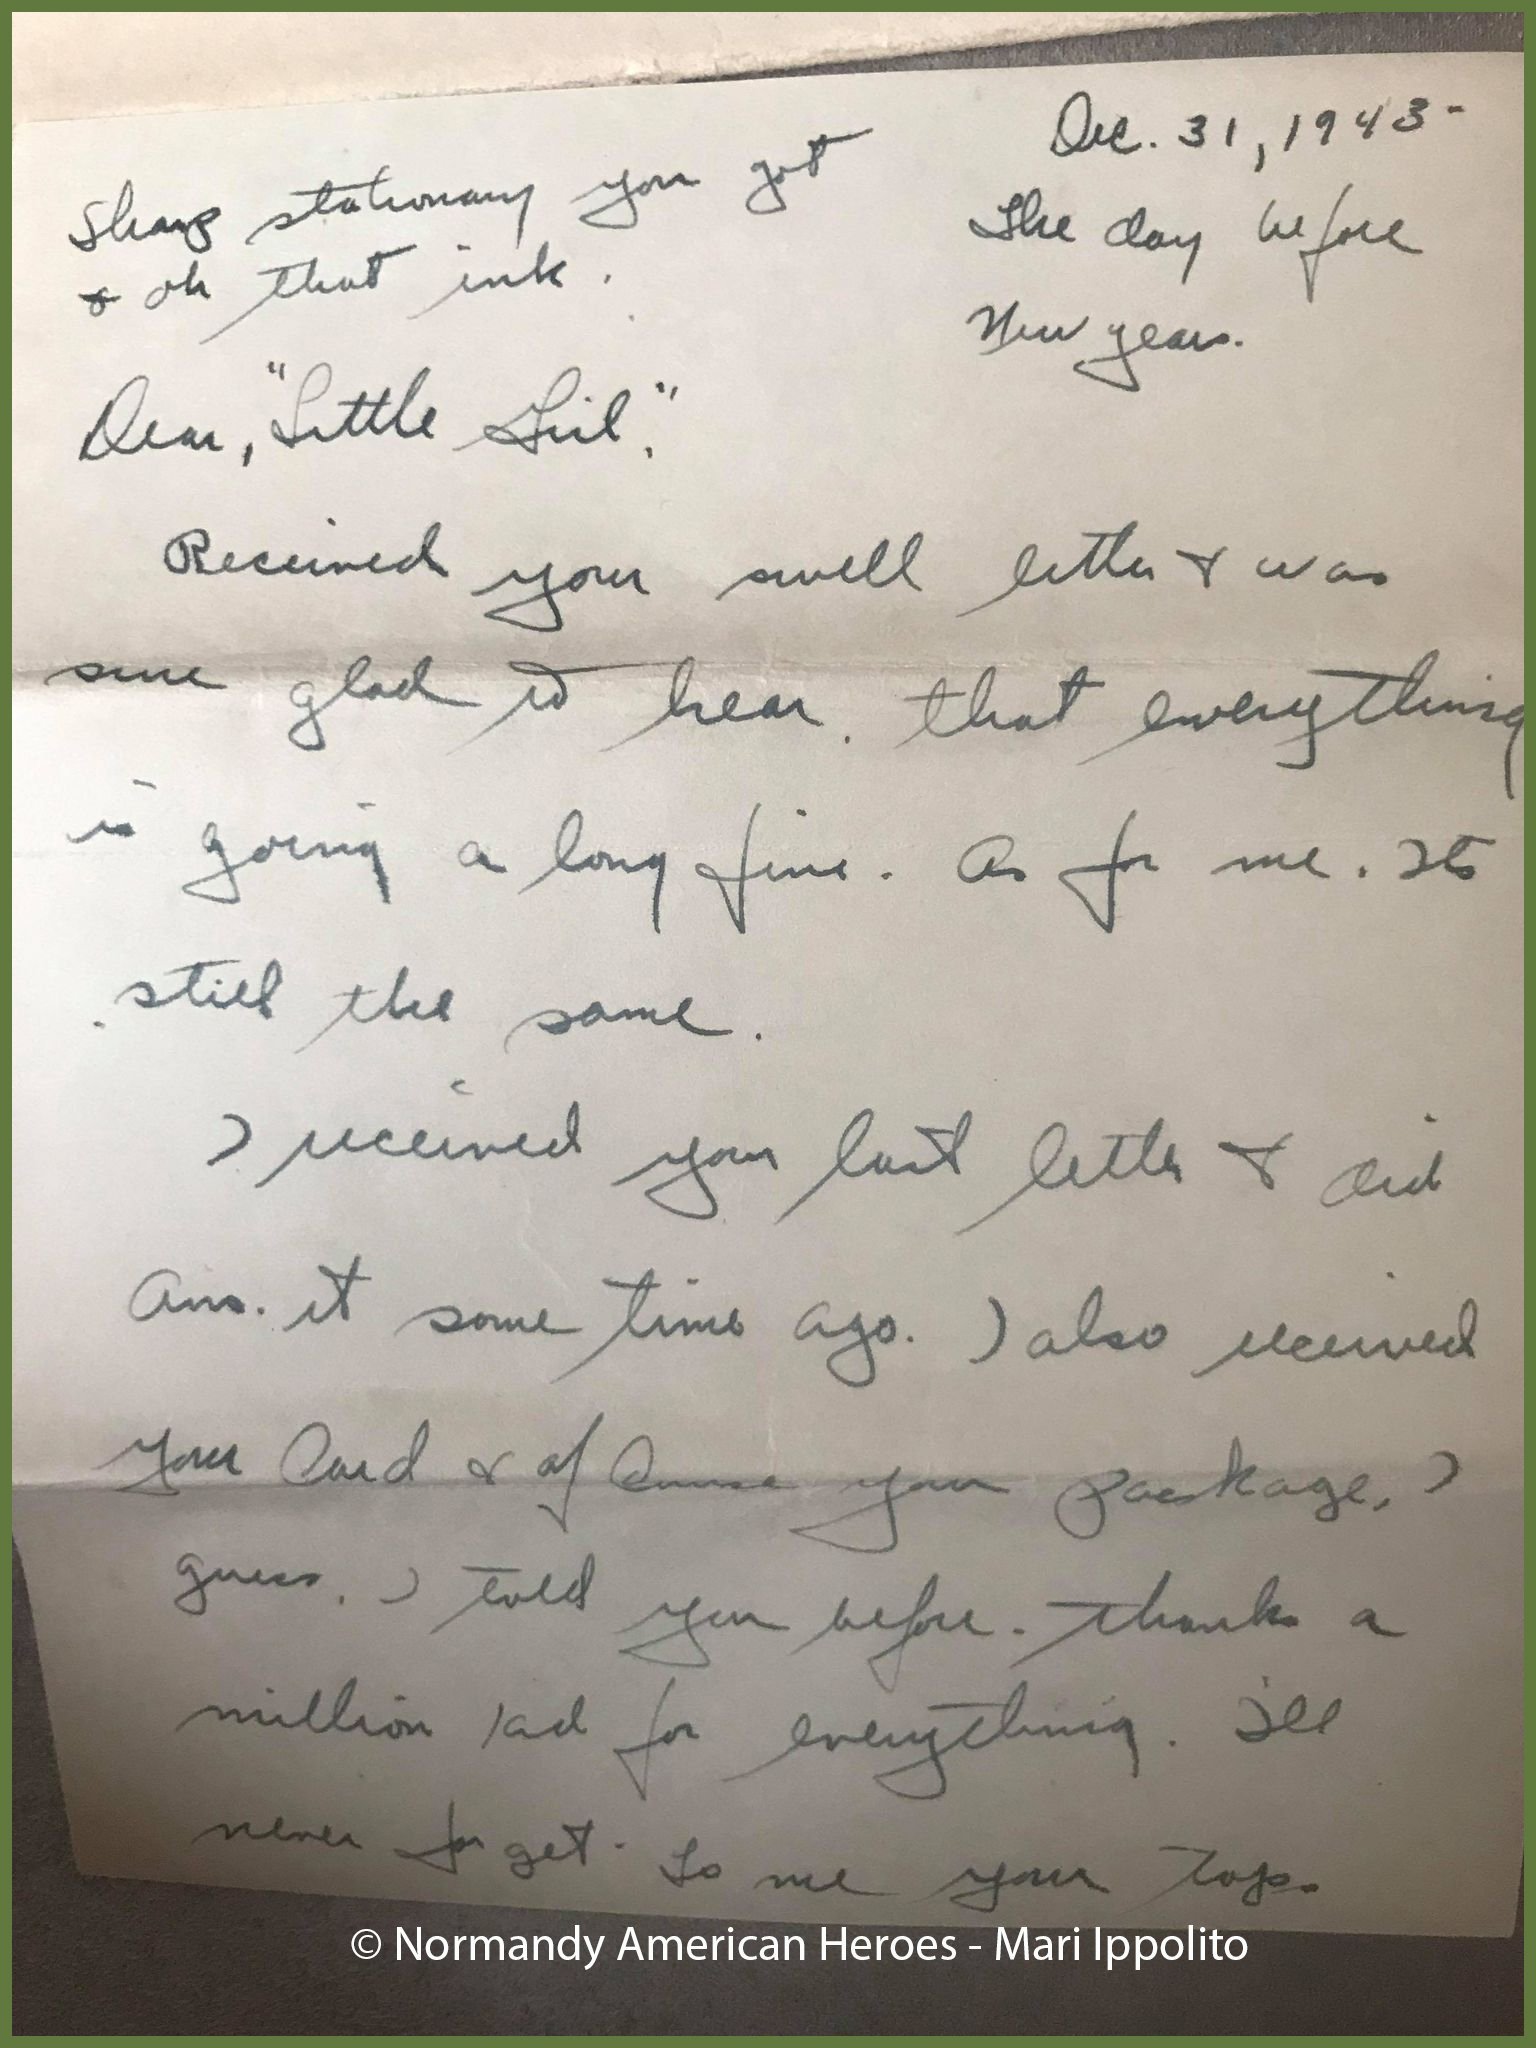 Dec. 31, 1943-
The day before
New years.
Sharp stationary you got
& oh that ink.
Dear, "Little Girl,"
Received your swell letter & was
sure glad to hear that everything
is going a long fine. As for me. Its
still the same.
I received your last letter & did
Ans. it some time ago. I also received
your Card & of Course your package, I
guess. I told you before. thanks a
million kid for everything. I'll
never forget. To me your tops.
© Normandy American Heroes - Mari Ippolito